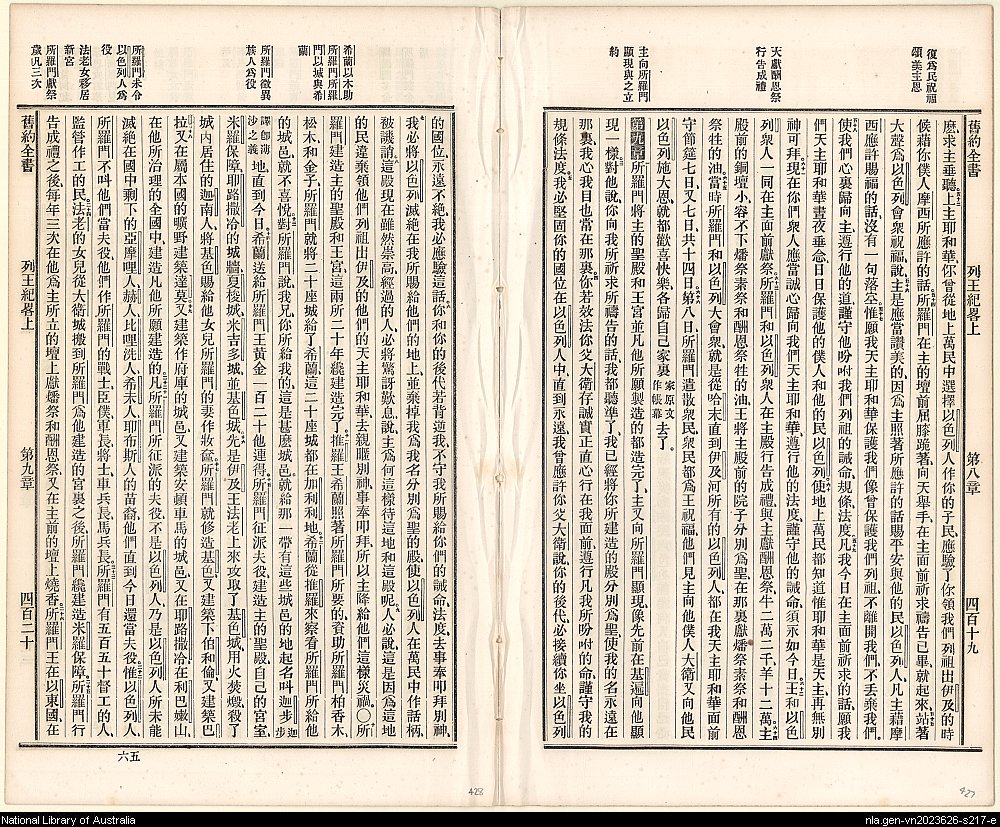 復爲民祝福
頌美主恩
天獻酬恩祭
行告成禮
主向所羅門
顯現與之立
約
舊約全書 列王紀畧上 第八章 四百十九
麼求主垂聽上主耶和華你曾從地上萬民中選擇以色列人作你的子民應驗了你領我們列祖出伊及的時
候藉你僕人摩西所應許的話所羅門在主的壇前屈膝跪著向天舉手在主面前祈求禱告已畢就起來站著
大聲爲以色列會衆祝福說主是應當讚美的因爲主照著所應許的話賜平安與他的民以色列人凡主藉摩
西應許賜福的話沒有一句落空惟願我天主耶和華保護我們像曾保護我們列祖不離開我們不丟棄我們
使我們心裏歸向主遵行他的道謹守他吩咐我們列祖的誡命規條法度凡我今日在主面前祈求的話願我
們天主耶和華晝夜垂念日日保護他的僕人和他的民以色列使地上萬民都知道惟耶和華是天主再無別
神可拜現在你們衆人應當誠心歸向我們天主耶和華遵行他的法度謹守他的誡命須永如今日王和以色
列衆人一同在主面前獻祭所羅門和以色列衆人在主殿行告成禮與主獻酬恩祭牛二萬二千羊十二萬主
殿前的銅壇小容不下燔祭素祭和酬恩祭牲的油王將主殿前的院子分別爲聖在那裏獻燔祭素祭和酬恩
祭牲的油當時所羅門和以色列大會衆就是從哈末直到伊及河所有的以色列人都在我天主耶和華面前
守節筵七日又七日共十四日第八日所羅門遣散衆民衆民都爲王祝福他們見主向他僕人大衛又向他民
以色列施大恩就都歡喜快樂各歸自己家裏家原文作帳幕去了
第九章所羅門將主的聖殿和王宮並凡他所願製造的都造完了主又向所羅門顯現像先前在基遍向他顯
現一樣對他說你向我所祈求所禱告的話我都聽準了我已經將你所建造的殿分別爲聖使我的名永遠在
那裏我心我目也常在那裏你若效法你父大衛存誠實正直心行在我面前遵行凡我所吩咐的命謹守我的
規條法度我必堅固你的國位在以色列人中直到永遠我曾應許你父大衛說你的後代必接續你坐以色列
希蘭以木助
所羅門所羅
門以城與希
蘭
所羅門徵異
族人爲役
所羅門未令
以色列人爲
役
法老女移居
新宮
所羅門獻祭
歲凡三次
的國位永遠不絕我必應驗這話你和你的後代若背逆我不守我所賜給你們的誡命法度去事奉叩拜別神
我必將以色列滅絕在我所賜給他們的地上並棄掉我爲我名分別爲聖的殿使以色列人在萬民中作話柄
被譏誚這殿現在雖然崇高經過的人必將驚訝歎息說主爲何這樣待這地和這殿呢人必說這是因爲這地
的民違棄領他們列祖出伊及的他們的天主耶和華去親暱別神事奉叩拜所以主降給他們這樣災禍○所
羅門建造主的聖殿和王宮這兩所二十年纔建造完了推羅王希蘭照著所羅門所要的資助所羅門柏香木
松木和金子所羅門就將二十座城給了希蘭這二十座城都在加利利地希蘭從推羅來察看所羅門所給他
的城邑就不喜悅對所羅門說我兄你所給我的這是甚麼城邑就給那一帶有這些城邑的地起名叫迦步迦步
譯卽薄沙之義地直到今日希蘭送給所羅門王黃金一百二十他連得所羅門征派夫役建造主的聖殿自己的宮室
米羅保障耶路撒冷的城牆夏梭城米吉多城並基色城先是伊及王法老上來攻取了基色城用火焚燬殺了
城內居住的迦南人將基色賜給他女兒所羅門的妻作妝奩所羅門就修造基色又建築下伯和倫又建築巴
拉又在屬本國的曠野建築達莫又建築作府庫的城邑又建築安頓車馬的城邑又在耶路撒冷在利巴嫩山
在他所治理的全國中建造凡他所願建造的凡所羅門所征派的夫役不是以色列人乃是以色列人所未能
滅絕在國中剩下的亞摩哩人赫人比哩洗人希未人耶布斯人的苗裔他們直到今日還當夫役惟以色列人
所羅門不叫他們當夫役他們作所羅門的戰士臣僕軍長將士車兵長馬兵長所羅門有五百五十督工的人
監管作工的民法老的女兒從大衛城搬到所羅門爲他建造的宮裏之後所羅門纔建造米羅保障所羅門行
告成禮之後每年三次在他爲主所立的壇上獻燔祭和酬恩祭又在主前的壇上燒香所羅門王在以東國在
舊約全書 列王紀畧上 第九章 四百二十
六五
428
427
National Library of Australia
nla.gen-vn2023626-s217-e